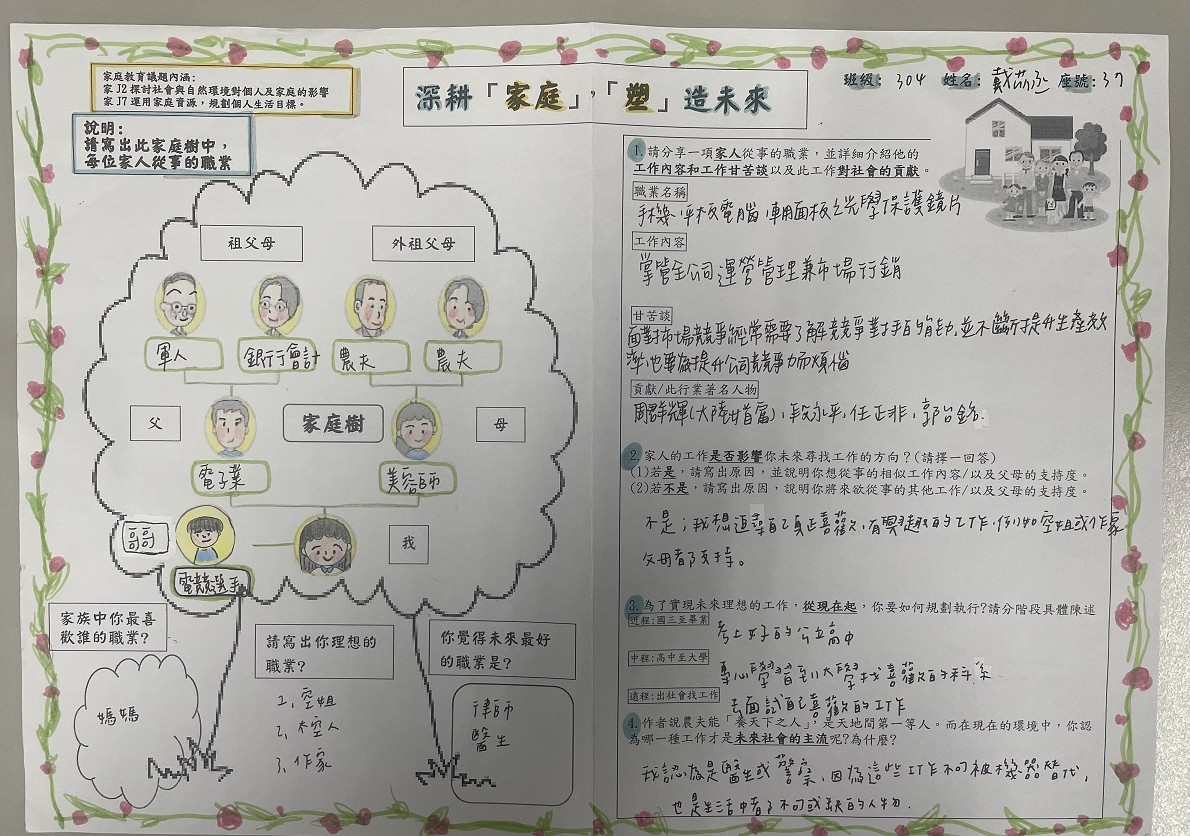 家庭教育議題內涵:
家 J2 探討社會與自然環境對個人及家庭的影響
家 J7 運用家庭資源，規劃個人生活目標。
說明:
請寫出此家庭樹中，
每位家人從事的職業
深耕「家庭」，「塑」造未來
班級: 304 姓名: 戴 座號: 37
祖父母
外祖父母
軍人
銀行會計
農夫
農夫
父
家庭樹
母
電子業
美容師
哥哥
我
電競選手
家族中你最喜
歡誰的職業?
媽媽
請寫出你理想的
職業?
1、空姐
2、太空人
3、作家
你覺得未來最好
的職業是?
律師
醫生
1.請分享一項家人從事的職業，並詳細介紹他的
工作內容和工作甘苦談以及此工作對社會的貢獻。
職業名稱
手機、平板電腦、車用面板之光學保護鏡片
工作內容
掌管全公司運營管理兼市場行銷
甘苦談
面對市場競爭經常需要了解競爭對手的能力，並不斷提升生產效
率，也要為提升公司競爭力而煩惱
貢獻/此行業著名人物
周群輝(大陸首富)、段永平、任正非、郭台銘.
2.家人的工作是否影響你未來尋找工作的方向?(請擇一回答)
(1)若是，請寫出原因，並說明你想從事的相似工作內容/以及父母的支持度。
(2)若不是，請寫出原因，說明你將來欲從事的其他工作/以及父母的支持度。
不是；我想追尋自己真正喜歡，有興趣的工作，例如空姐或作家
父母都支持。
3.為了實現未來理想的工作，從現在起，你要如何規劃執行?請分階段具體陳述
近程:國三至畢業
考上好的公立高中
中程:高中至大學
專心學習到大學找喜歡的科系
遠程:出社會找工作
去面試自己喜歡的工作
4.作者說農夫能「養天下之人」，是天地間第一等人。而在現在的環境中，你認
為哪一種工作才是未來社會的主流呢?為什麼?
我認為是醫生或警察，因為這些工作不可被機器替代，
也是生活中有了不可或缺的人物.